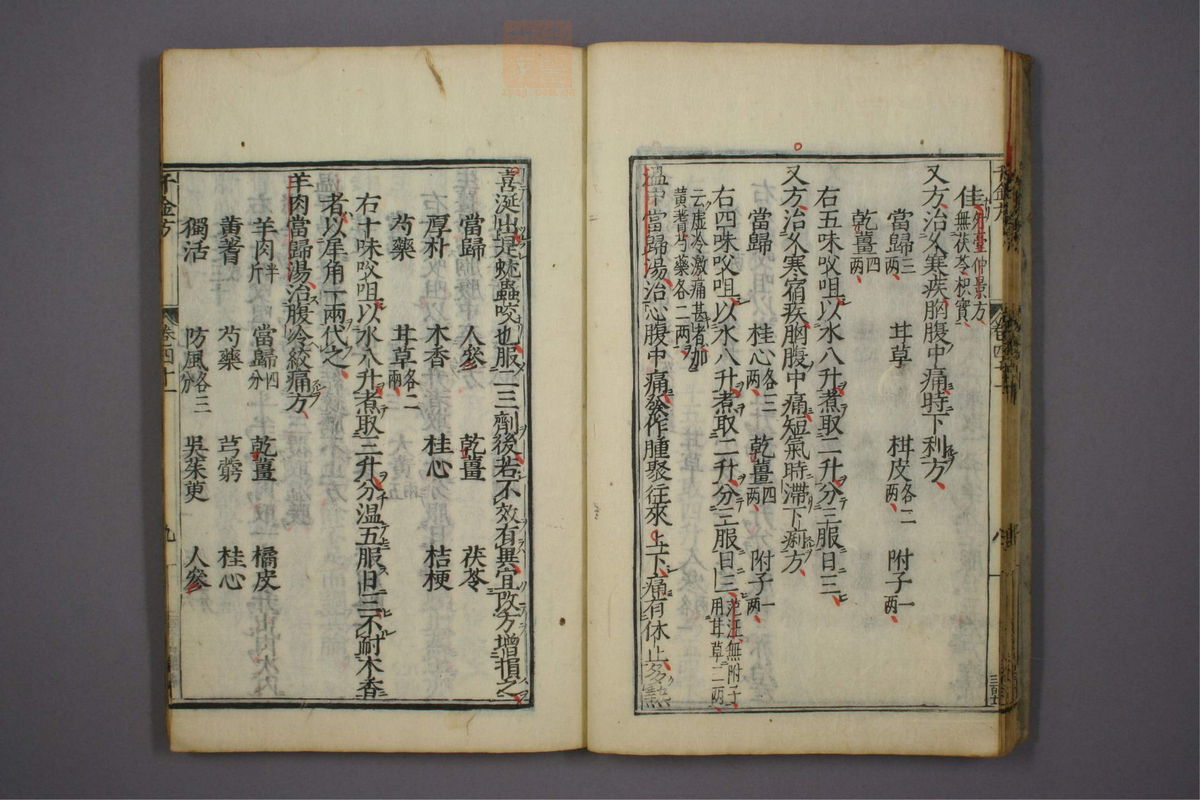 佳外臺仲景方無茯苓枳實
又方治久寒疾胸腹中痛時下利方
當歸三兩 甘草 柑皮各二兩 附子一兩
乾薑四兩
右五味㕮咀以水八升煮取二升分三服日三
又方治久寒宿疾胸腹中痛短氣時滯下痢方
當歸 桂心各三兩 乾薑四兩 附子一兩
右四味㕮咀以水八升煮取二升分三服日三范汪無附子用甘草二兩
云虛冷激痛甚者加黃耆芍藥各二兩
溫中當歸湯治心腹中痛發作腫聚往來上下痛有休止多熱
喜涎出是蚘蟲咬也服二三劑後若不效有異宜改方增損之
當歸 人參 乾薑 茯苓
厚朴 木香 桂心 桔梗
芍藥 甘草各二兩
右十味㕮咀以水八升煮取三升分溫五服日三不耐木香
者以犀角一兩代之
羊肉當歸湯治腹冷絞痛方
羊肉半斤 當歸四分 乾薑 橘皮
黃蓍 芍藥 芎藭 桂心
獨活 防風各三分 吳茱萸 人參
千金方 卷四十一 九